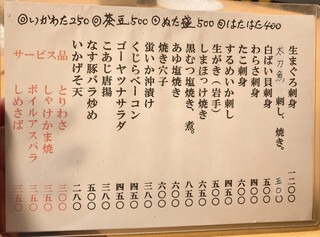 ◎いかわた250 ◎茶豆500 ◎ぬた盛500 ◎はたはた400
生まぐろ刺身 一二〇〇
太刀魚。刺し、焼き。 五〇〇
白ばい貝刺身 五〇〇
わらさ刺身 五〇〇
たこ刺身 四五〇
するめいか刺し 四五〇
生がき（岩手） 五〇〇
しまほっけ焼き 六〇〇
黒むつ塩焼き、煮。 八五〇
あゆ塩焼き 六〇〇
焼き穴子 六〇〇
蛍いか沖漬け 三八〇
くじらベーコン 四五〇
ゴーヤツナサラダ 四五〇
こあじ唐揚 三八〇
なす豚バラ炒め 五〇〇
いかげそ天 二八〇
サービス品
とりわさ 三〇〇
しゃけかま焼 三五〇
ボイルアスパラ 三五〇
しめさば 三五〇